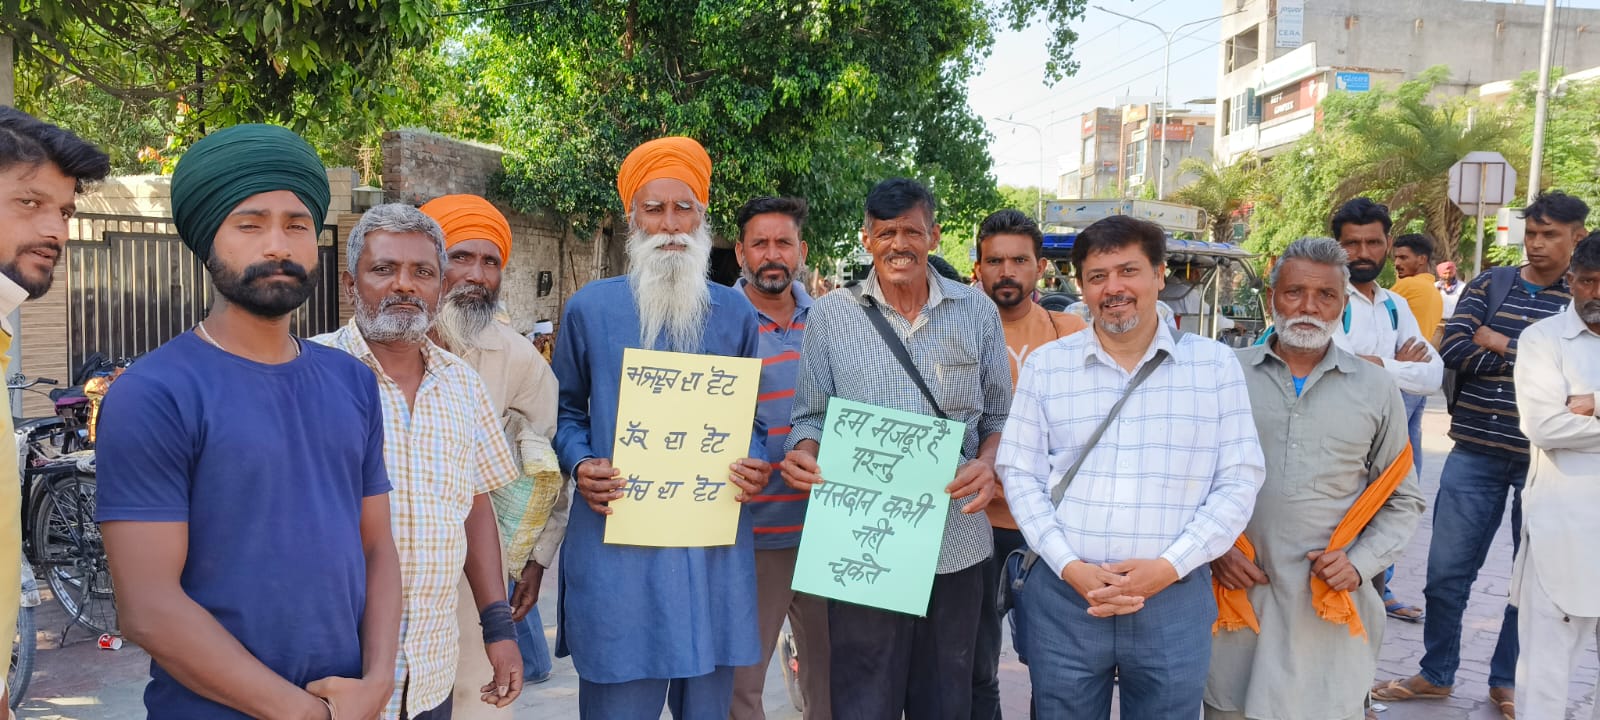 ਮਜਦੂਰ ਦਾ ਵੋਟ
ਹੱਕ ਦਾ ਵੋਟ
ਸੱਚ ਦਾ ਵੋਟ
हम मजदूर हैं
परन्तु
मतदान कभी
नही
चूकते
CERA